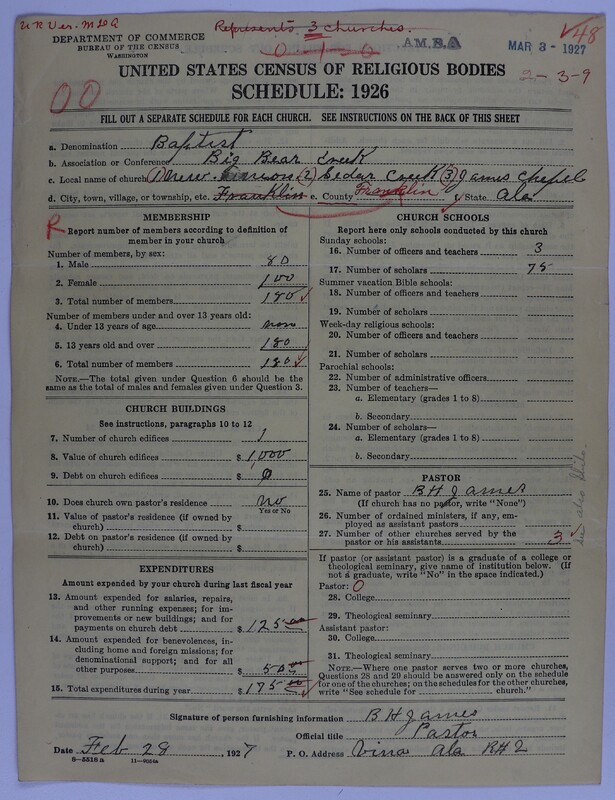 Represents 3 churches.
DEPARTMENT OF COMMERCE
BUREAU OF THE CENSUS
WASHINGTON
A.M.B.A
MAR 3 - 1927
48
2-3-9
UNITED STATES CENSUS OF RELIGIOUS BODIES
SCHEDULE: 1926
00
FILL OUT A SEPARATE SCHEDULE FOR EACH CHURCH. SEE INSTRUCTIONS ON THE BACK OF THIS SHEET
a. Denomination Baptist
b. Association or Conference Big Bear Creek
c. Local name of church (1) New Union (2) Cedar Creek (3) James Chapel
d. City, town, village, or township, etc. Franklin e. County Franklin f. State Ala
R
MEMBERSHIP
Report number of members according to definition of member in your church
Number of members, by sex:
1. Male 80
2. Female 100
3. Total number of members 180
Number of members under and over 13 years old:
4. Under 13 years of age non
5. 13 years old and over 180
6. Total number of members 180
NOTE.—The total given under Question 6 should be the same as the total of males and females given under Question 3.
CHURCH BUILDINGS
See instructions, paragraphs 10 to 12
7. Number of church edifices 1
8. Value of church edifices $ 1,000
9. Debt on church edifices $ 0
10. Does church own pastor's residence no
Yes or No
11. Value of pastor's residence (if owned by church) $
12. Debt on pastor's residence (if owned by church) $
EXPENDITURES
Amount expended by your church during last fiscal year
13. Amount expended for salaries, repairs, and other running expenses; for improvements or new buildings; and for payments on church debt $ 125 00
14. Amount expended for benevolences, including home and foreign missions; for denominational support; and for all other purposes $ 50 00
15. Total expenditures during year $ 175 00
CHURCH SCHOOLS
Report here only schools conducted by this church
Sunday schools:
16. Number of officers and teachers 3
17. Number of scholars 75
Summer vacation Bible schools:
18. Number of officers and teachers
19. Number of scholars
Week-day religious schools:
20. Number of officers and teachers
21. Number of scholars
Parochial schools:
22. Number of administrative officers
23. Number of teachers—
a. Elementary (grades 1 to 8)
b. Secondary
24. Number of scholars—
a. Elementary (grades 1 to 8)
b. Secondary
PASTOR
25. Name of pastor B H James
(If church has no pastor, write "None")
26. Number of ordained ministers, if any, employed as assistant pastors
27. Number of other churches served by the pastor or his assistants 3
If pastor (or assistant pastor) is a graduate of a college or theological seminary, give name of institution below. (If not a graduate, write "No" in the space indicated.)
Pastor: 0
28. College
29. Theological seminary
Assistant pastor:
30. College
31. Theological seminary
NOTE.—Where one pastor serves two or more churches, Questions 28 and 29 should be answered only on the schedule for one of the churches; on the schedules for the other churches, write "See schedule for church."
Signature of person furnishing information B H James
Official title Pastor
Date Feb 28, 1927 P. O. Address Vina Ala R#2
8—5518 a 11—9054a